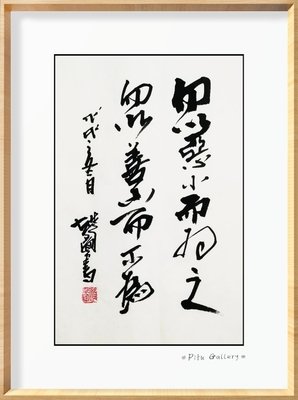 勿以惡小而為之
勿以善小而不為
戊戌
書
Pits Gallery